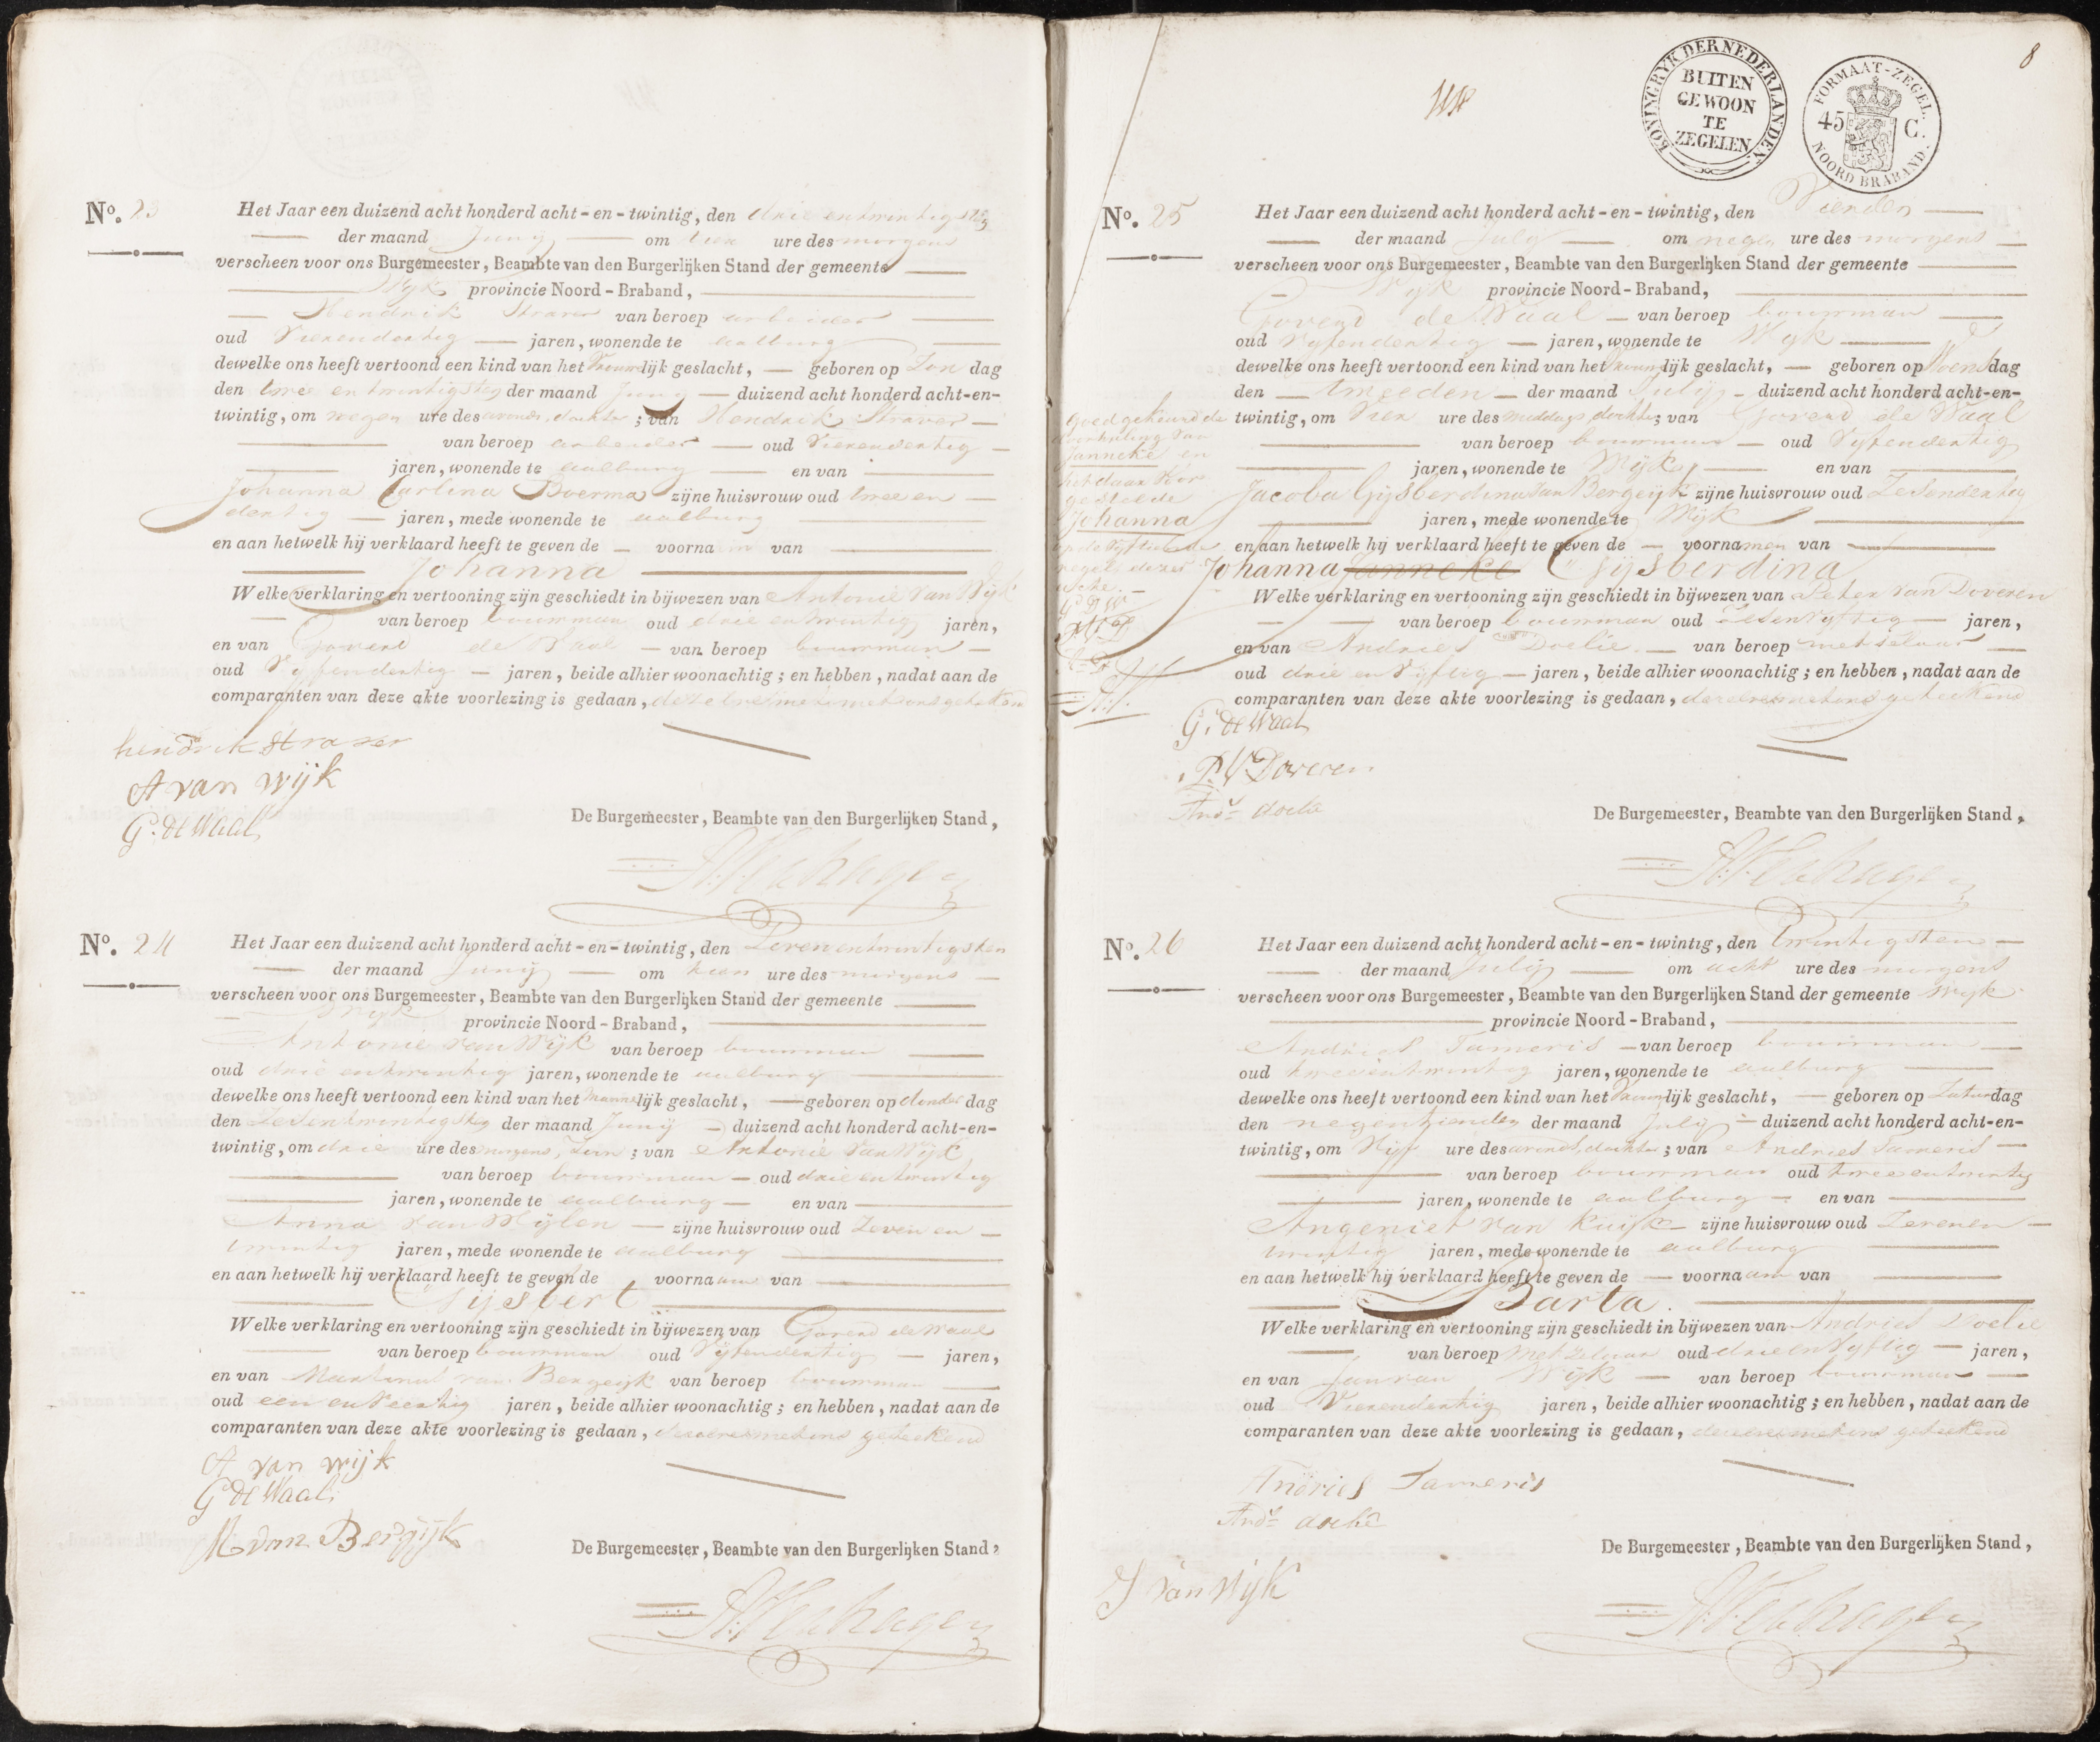 No. 23
Het Jaar een duizend acht honderd acht-en-twintig, den drie en twintigsten
der maand Junij om tien ure des morgens
verscheen voor ons Burgemeester, Beambte van den Burgerlijken Stand der gemeente
Wijk provincie Noord-Braband,
Hendrik Straver van beroep arbeider
oud Vierendertig jaren, wonende te aalburg
dewelke ons heeft vertoond een kind van het Vrouwlijk geslacht, geboren op Zon dag
den twee en twintigsten der maand Junij duizend acht honderd acht-en-
twintig, om negen ure des avonds, dochter ; van Hendrik Straver
van beroep arbeider oud Vierendertig
jaren, wonende te aalburg en van
Johanna Carlina Boerma zijne huisvrouw oud twee en
dertig jaren, mede wonende te aalburg
en aan hetwelk hij verklaard heeft te geven de voornaam van
Johanna
Welke verklaring en vertooning zijn geschiedt in bijwezen van Antonie van Wijk
van beroep bouwman oud drie en twintig jaren,
en van Goverd de Waal van beroep bouwman
oud Vijfendertig jaren, beide alhier woonachtig; en hebben, nadat aan de
comparanten van deze akte voorlezing is gedaan,
hendrik straver
A van Wijk
G. de Waal
De Burgemeester, Beambte van den Burgerlijken Stand,
No. 24
Het Jaar een duizend acht honderd acht-en-twintig, den Zevenentwintigsten
der maand Junij om tien ure des morgens
verscheen voor ons Burgemeester, Beambte van den Burgerlijken Stand der gemeente
Wijk provincie Noord-Braband,
Antonie van Wijk van beroep bouwman
oud drie entwintig jaren, wonende te aalburg
dewelke ons heeft vertoond een kind van het Mannelijk geslacht, geboren op donder dag
den Zesentwintigsten der maand Junij duizend acht honderd acht-en-
twintig, om drie ure des morgens, Zoon ; van Antonie van Wijk
van beroep bouwman oud drie entwintig
jaren, wonende te aalburg en van
Anna van Wijlen zijne huisvrouw oud Zeven en
twintig jaren, mede wonende te aalburg
en aan hetwelk hij verklaard heeft te geven de voornaam van
Gijsbert
Welke verklaring en vertooning zijn geschiedt in bijwezen van Goverd de Waal
van beroep bouwman oud Vijfendertig jaren,
en van Martinus van Bergeijk van beroep bouwman
oud een en veertig jaren, beide alhier woonachtig; en hebben, nadat aan de
comparanten van deze akte voorlezing is gedaan, deze nevens met ons geteekend
A van Wijk
G de Waal
M van Bergijk
De Burgemeester, Beambte van den Burgerlijken Stand,
8
KONINGRYK DER NEDERLANDEN
BUITEN
GEWOON
TE
ZEGELEN
FORMAAT-ZEGEL.
45 C.
NOORD BRABAND.
No. 25
Het Jaar een duizend acht honderd acht-en-twintig, den Vierden
der maand July om negen ure des morgens
verscheen voor ons Burgemeester, Beambte van den Burgerlijken Stand der gemeente
Wijk provincie Noord-Braband,
Goverd de Waal van beroep bouwman
oud Vijfendertig jaren, wonende te Wijk
dewelke ons heeft vertoond een kind van het Vrouwlijk geslacht, geboren op Woensdag
den tweeden der maand Julij duizend acht honderd acht-en-
twintig, om Vier ure des middags dochter; van Goverd de Waal
van beroep bouwman oud Vijfendertig
jaren, wonende te Wijk en van
Jacoba Gijsberdina van Bergeijk zijne huisvrouw oud Zesendertig
jaren, mede wonende te Wijk
en aan hetwelk hij verklaard heeft te geven de voornamen van
Johanna Janneke Gijsberdina
Welke verklaring en vertooning zijn geschiedt in bijwezen van Peter van Doveren
van beroep bouwman oud Zesenvyftig jaren,
en van Andries Doelie van beroep metselaar
oud drie en Vijftig jaren, beide alhier woonachtig; en hebben, nadat aan de
comparanten van deze akte voorlezing is gedaan,
goedgekeurd de
doorhaling van
Janneke en
het daar voor
gestelde
Johanna
op de vijftiende
regel dezer
acte.
G. de Waal
P. V Doveren
Ands doelie
De Burgemeester, Beambte van den Burgerlijken Stand,
No. 26
Het Jaar een duizend acht honderd acht-en-twintig, den twintigsten
der maand Julij om acht ure des morgens
verscheen voor ons Burgemeester, Beambte van den Burgerlijken Stand der gemeente Wijk
provincie Noord-Braband,
Andries Tameris van beroep bouwman
oud tweeentwintig jaren, wonende te aalburg
dewelke ons heeft vertoond een kind van het Vrouwlijk geslacht, geboren op Zaturdag
den negentienden der maand July duizend acht honderd acht-en-
twintig, om Vijf ure des avonds, dochter ; van Andries Tameris
van beroep bouwman oud tweeentwintig
jaren, wonende te aalburg en van
Angeniet van Kuijk zijne huisvrouw oud Zevenen
twintig jaren, mede wonende te aalburg
en aan hetwelk hij verklaard heeft te geven de voornaam van
Barta.
Welke verklaring en vertooning zijn geschiedt in bijwezen van Andries Doelie
van beroep Metzelaar oud drieenvyftig jaren,
en van Jan van Wijk van beroep bouwman
oud Vierendertig jaren, beide alhier woonachtig; en hebben, nadat aan de
comparanten van deze akte voorlezing is gedaan,
Andries Tameris
Ands doelie
J van Wijk
De Burgemeester, Beambte van den Burgerlijken Stand,